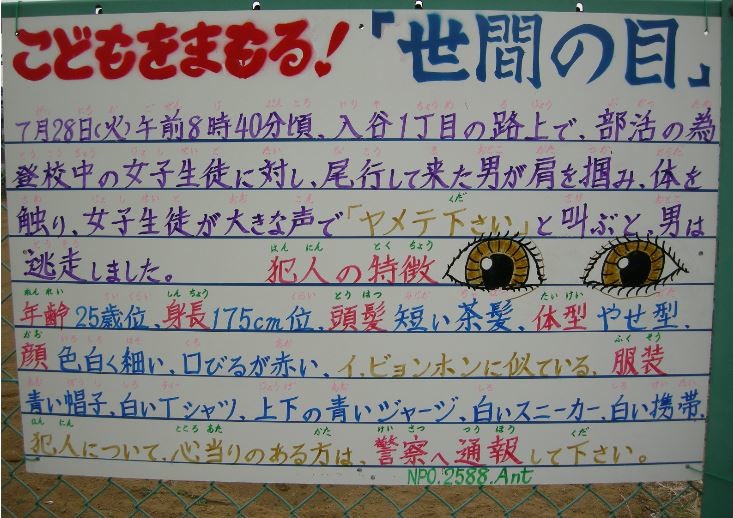 こどもをまもる!「世間の目」
7月28日(火)午前8時40分頃、入谷1丁目の路上で、部活の為
登校中の女子生徒に対し、尾行して来た男が肩を掴み、体を
触り、女子生徒が大きな声で「ヤメテ下さい」と叫ぶと、男は
逃走しました。 犯人の特徴
年齢25歳位、身長175cm位、頭髪短い茶髪、体型やせ型、
顔色白く細い、口びるが赤い、イ.ビョンホンに似ている、服装
青い帽子、白いTシャツ、上下の青いジャージ、白いスニーカー、白い携帯、
犯人について、心当りのある方は、警察へ通報して下さい。
NPO.2588.Ant